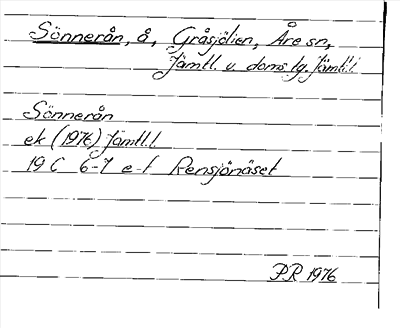 Sönnerån, å, Gråsjölien, Åre sn,
Jämtl. v. doms.tg. Jämtl.l.
Sönnerån
ek (1976) Jämtl.l.
19 C 6-7 e-f Rensjönäset
PR 1976